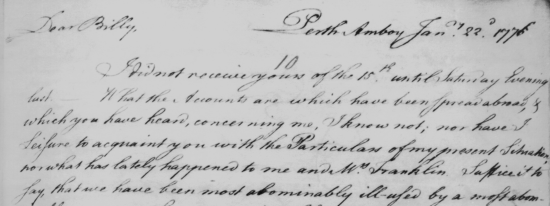 Dear Billy, Perth Amboy Jan.y 22.d 1776
10
I did not receive yours of the 15.th until Saturday Evening
last. — What the Accounts are which have been spread abroad, &
which you have heard, concerning me, I know not; nor have I
Leisure to acquaint you with the Particulars of my present Situation,
nor what has lately happened to me and Mrs. Franklin. Suffice it to
say, that we have been most abominably ill-used by a most abom-